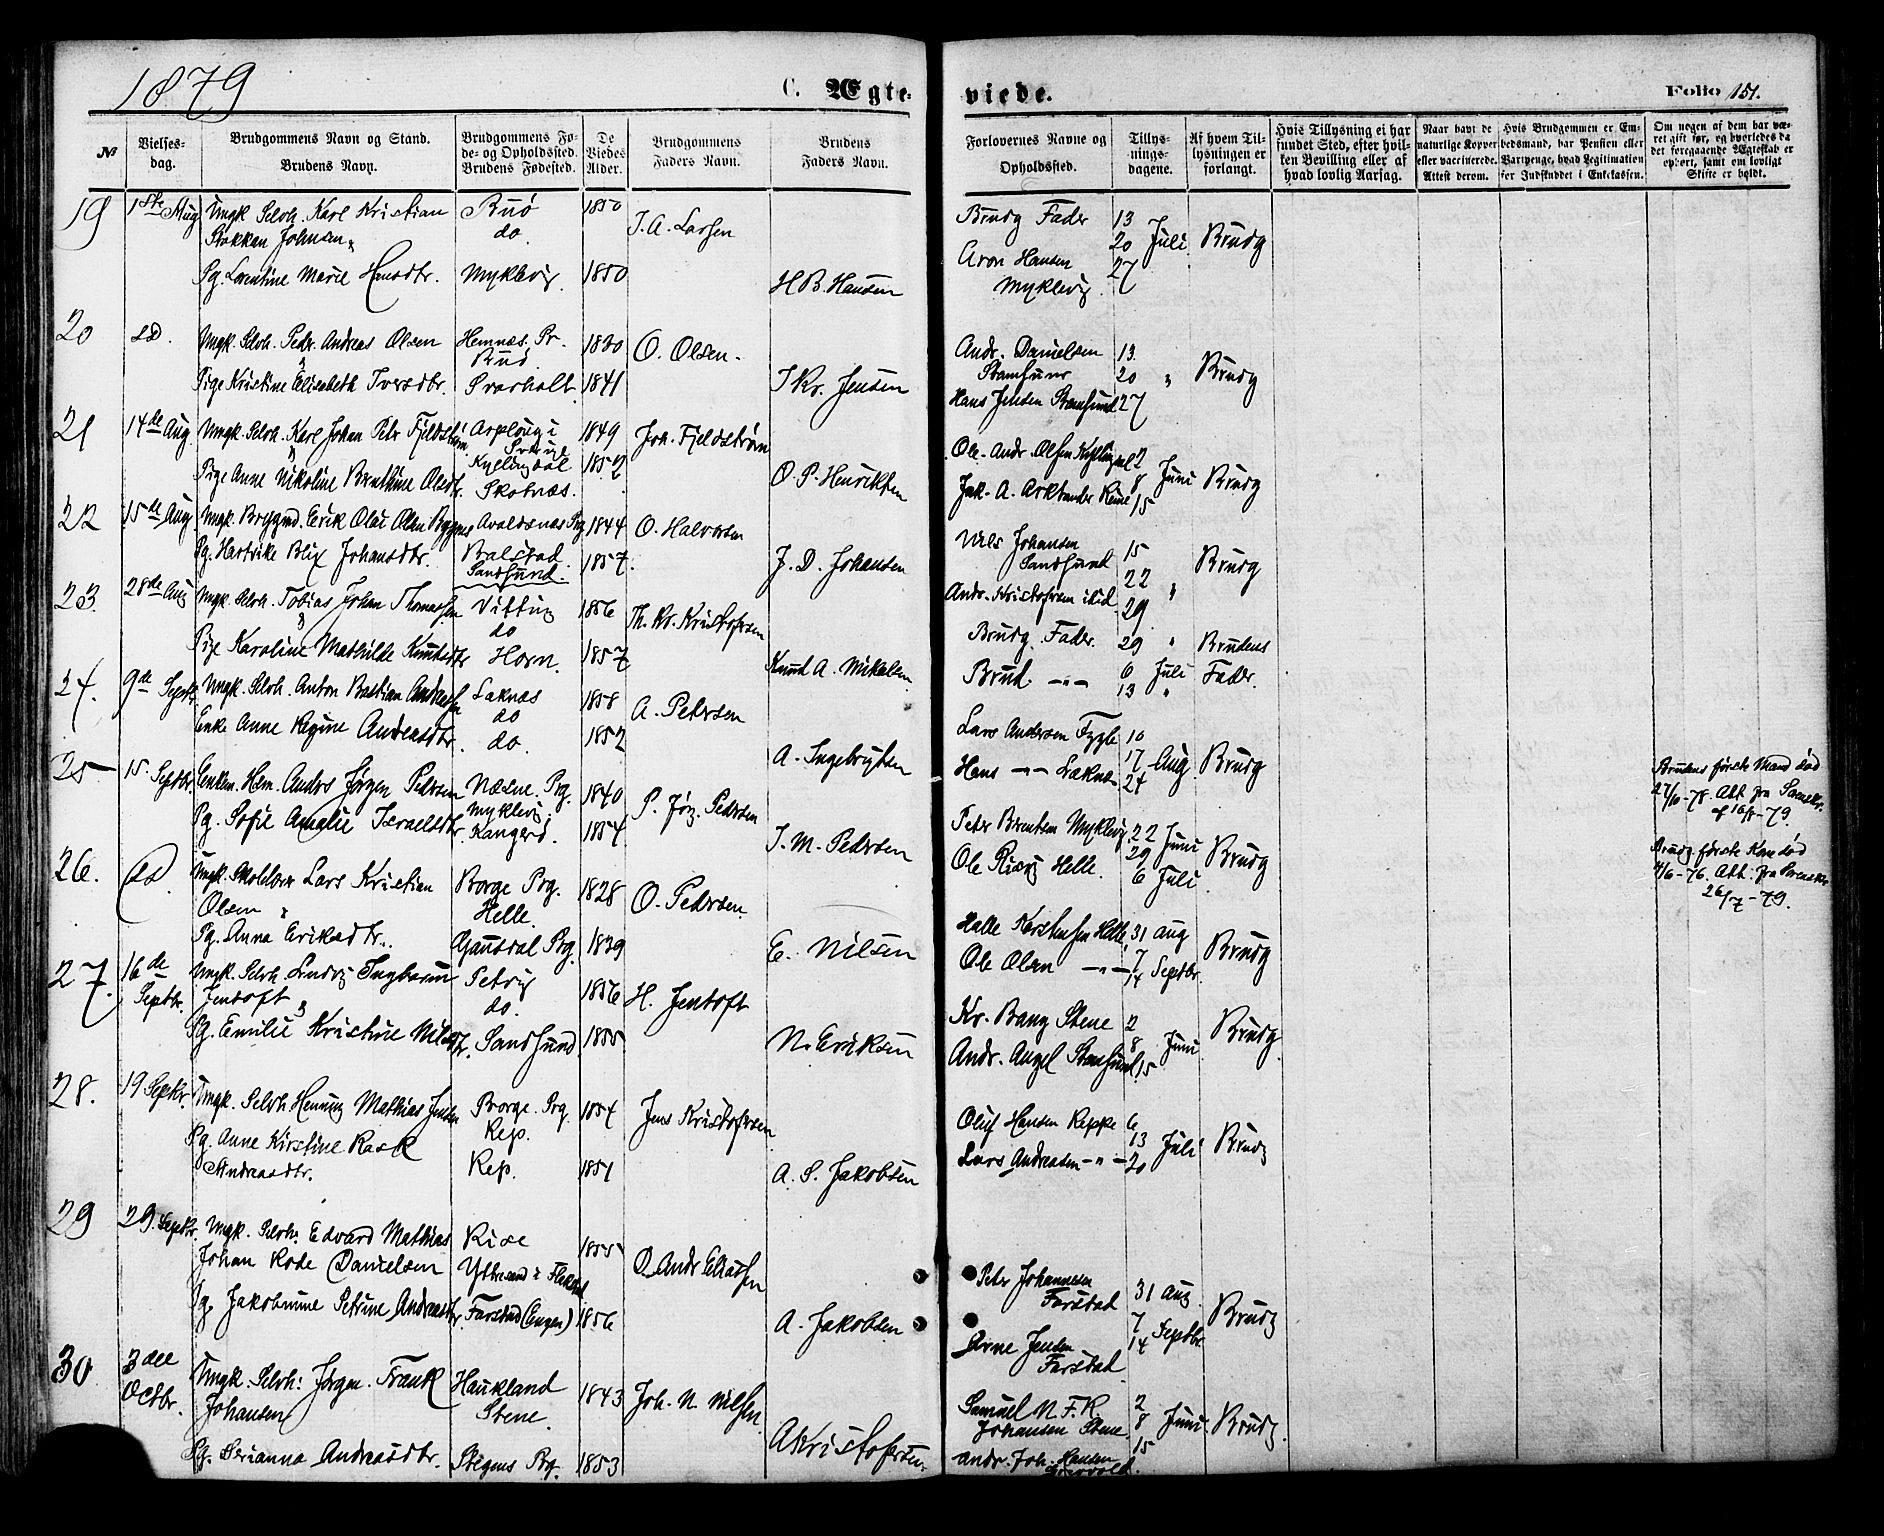 1879
C. Ægteviede.
Folio 151.
№
Vielsesdag.
Brudgommens Navn og Stand.
Brudens Navn.
Brudgommens Føde- og Opholdssted.
Brudens Fødested.
De Viedes Alder.
Brudgommens Faders Navn.
Brudens Faders Navn.
Forlovernes Navne og Opholdssted.
Tillysningsdagene.
Af hvem Tillysningen er forlangt.
Hvis Tillysning ei har fundet Sted, efter hvilken Bevilling eller af hvad lovlig Aarsag.
Naar havt de naturlige Kopper eller vaccinerede. Attest derom.
Hvis Brudgommen er Embedsmand, har Pension eller Vartpenge, hvad Legitimation for Indskuddet i Enkekassen.
Om nogen af dem har været gift før, og hvorledes da det foregaaende Ægteskab er ophørt, samt om lovligt Skifte er holdt.
19 1ste Aug Ungk. Selvh. Karl Kristian Buø 1850
Stokkan Johnsen do. J. A. Larsen
Pg. Lorentine Marie Hansdtr. Myklevig 1850
H B. Hansen
Brudg Fader 13
20 Juli Brudg
Aron Hansen 27
Myklevig
20 do. Ungk. Selvh. Peder Andreas Olsen Hemnæs. Pr. 1830
O. Olsen
Pige Kristine Elisenbeth Iversdtr. Svarholt 1841
J Kr. Jensen
Andr. Danielsen 13
Stamsund 20 " Brudg
Hans Jensen Stamsund 27
21 14de Aug Ungk. Selvh. Karl Johan Petr Fjeldstrøm Arplougi 1849
Sverige Joh. Fjeldstrøm
Kyllingdal 1857
Pige Anne Nikoline Bruthine Olsdtr. Skotnæs.
O. P. Henriksen
Ole Andr Olsen 2
8 Juni Brudg
Jak. A. Arktander Reine 15
22 15de Aug Ungk. Erik Olai Olsen Avaldsnæs Prg 1844 O. Halvorsen
Pg. Hartvike Blix Johansdtr. Balstad 1857
Sandsund.
J. D. Johansen
Nils Johansen 15
Sandsund 22 " Brudg
Andr. Kristofersen ibid 29
23. 28de Aug Ungk. Selvh. Tobias Johan Thomassen Vitting 1856
do Th. Kr. Kristofersen
Pige Karoline Mathilde Knutsdtr Horn. 1857
Knud A. Mikalsen
Brudg. Fader. 29 " Brudens
Brud. -"- 6 Juli Fader.
13 "
24. 9de Septbr. Ungk. Selvh. Anton Bastian Andreassen Laknæs 1858
do A. Petersen
Enke Anne Regine Andersdtr. do. 1852
A. Ingebrigtsen
Lars Andersen Fygle 10
17 Aug Brudg
Hans -"- Læknæs 24
Brudens første Mand død
27/10-78. Att. fra
af 16/8-79.
25 15. Septbr. Enkem. Hem. Anders Jørgen Pedersen Næsne. Prg. 1840
Myklevig P. Jørg. Pedersen
Pg. Sofie Amalie Israelsdtr. 1854
J. M. Pedersen
Peter Berntsen Myklevig 22 Juni
29 Brudg
Ole Helle. 6 Juli
Brudg første Kone død
4/6-76. Att. fra
26/7-79.
26. do Ungk. Lars Kristian Borge Prg. 1828
Olsen Helle. O. Pedersen
Pg. Anna Eriksdtr.. Gausdal Prg. 1839
E. Nilsen
Halle Kerstensen Helle 31 aug
7 Brudg
Ole Olsen -"- 14 Septbr.
27. 16de Septbr. Ungk. Selvh. Ludvig Ingbarun Petvig 1856
Jentoft do. H. Jentoft
Pg. Emilie Kristine Nilsdtr. Sandsund 1855
N. Eriksen
Kr. Bang Stene 2
8 Juni Brudg.
Andr. Angel Stamsund 15
28. 19 Septbr. Ungk. Selvh Henning Mathias Jensen Borge. Prg 1854
Rep. Jens Kristofersen
Pg. Anne Kirstine Rask Rep. 1851
Andreasdtr.
A. S. Jakobsen
Oluf Hansen Reppe 6
13 Juli Brudg
Lars Andreasen -"- 20
29 29. Septbr. Ungk. Selvh: Edvard Mathias Rise 1855
Johan Rode Danielsen Ytresand i Flakstad O. Andr Eliassen
Pg. Jakobmine Petrine Andreasdtr. Farstad (Engen) 1856
A. Jakobsen
Petr Johannesen 31 aug
Farstad 7 Brudg
14 Septbr.
Arne Jensen
Farstad
30 3die Octbr. Ungk. Selvh: Jørgen Frank Haukland 1843
Johansen Stene Joh. N. Nilsen
Pg. Berianna Andreasdtr. Stegens Prg. 1853
A Kristofersen
Samuel N. F. K. 2
Johansen Stene 8 Juni Brudg.
15
Andr. Joh. Hansen